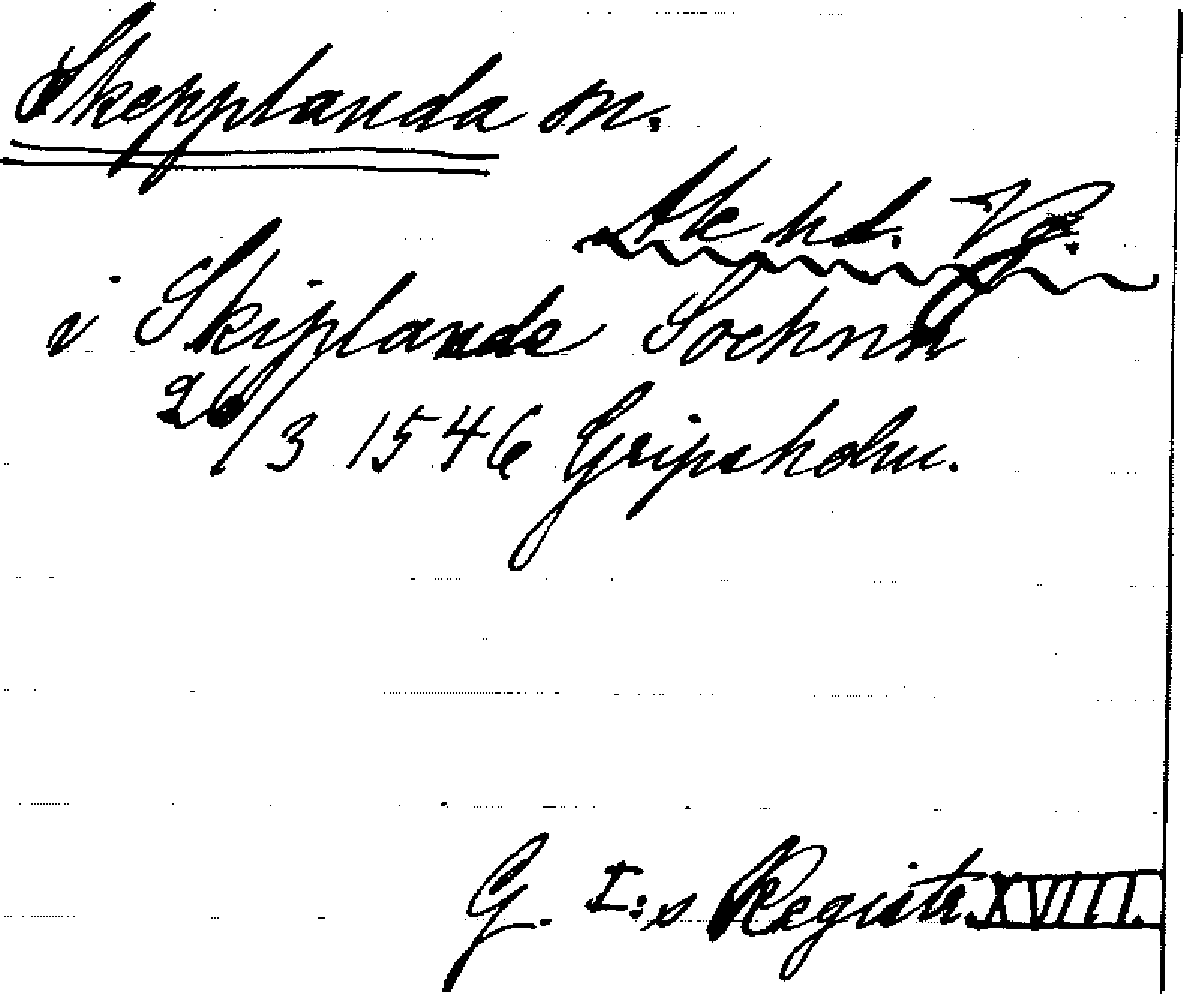 Skepplanda sn.
Ale hd. Vg.
i Skiplande Sochnn
26/3 1546 Gripsholm.
G. I:s Registr. XVIII.